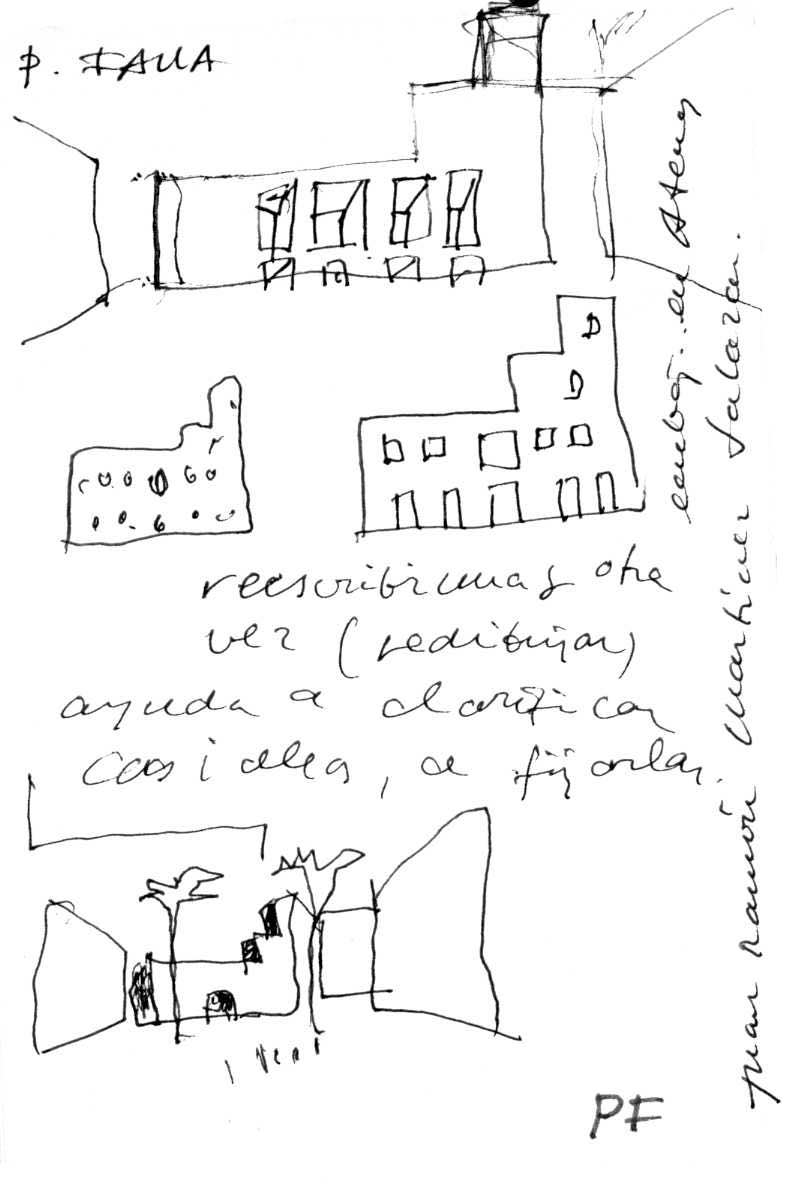 P. FALLA
reescribir una y otra
vez (redibujar)
ayuda a clarificar
las ideas, a fijarlas.
embaj. en Atenas
Juan Ramón Martínez Salazar.
PF